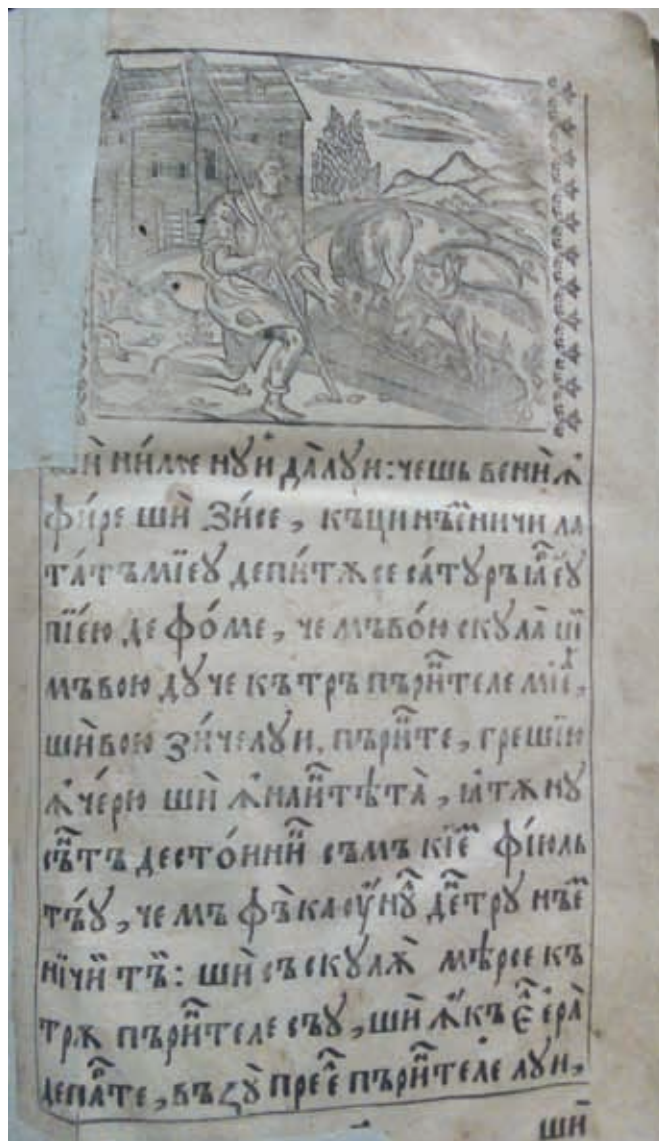 шѝ нималѐ нуй да̀луи: чешь венѝ ѫ҆
фи́ре шѝ Зи́се, къци нъе҆ничи ла
та́тъ мїеу депи́тѫ се са́туръ ꙗ҆́р еу
пїе́ю де фо́ме, че мъво́ю скула̀ ши
мъвою дуче кътръ пъри́нтеле мїе́ꙋ,
шѝ вою зи́челуи, пъри́нте, грешїю
ѫ҆ че́рю шѝ ѫ҆наи́нтѣ та̀, ꙗтѫ ну
съ́нтъ десто́йнй съмъ кїе́м фїюль
тъ́у, че мъ фъ̀ ка оу҆ну̀ ди́нтру нъе҆
ничїи тъ́й: шѝ съ скулѫ̀ мѣ́рсе къ
трѫ пъри́нтеле съу, шѝ ѫ҆́къ є҆́л є҆ра̀
депа́рте, въꙁу̀ пре є҆́л пъри́нтеле луи,
шѝ